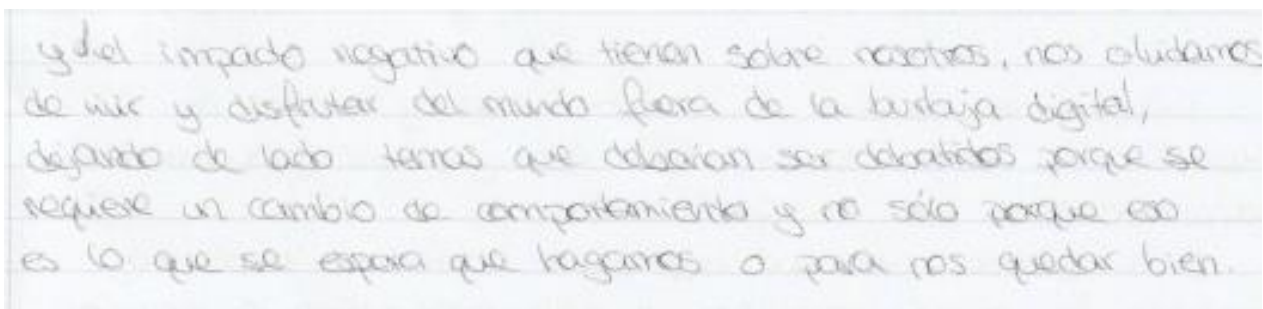 y del impacto negativo que tienen sobre nosotros, nos oludamos
de vivir y disfrutar del mundo fuera de la burbuja digital,
dejando de lado temas que deberían ser debatidos porque se
requiere un cambio de comportamiento y no sólo porque eso
es lo que se espera que hagamos o para nos quedar bien.